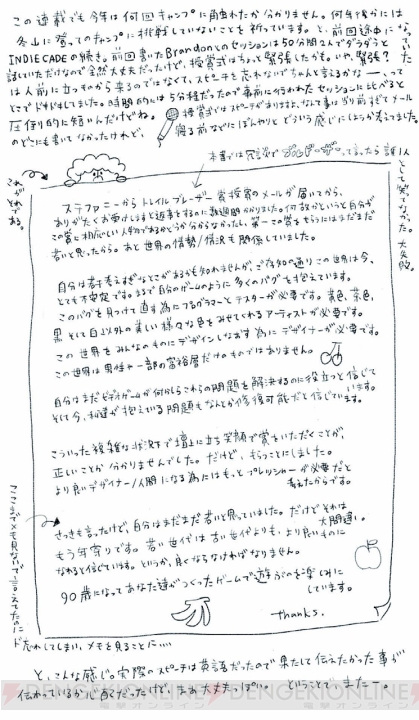 この連載でも今年は何回キャンプに触れたか分かりません。何年後かには
冬山に登ってのキャンプに挑戦していないことを祈っています。と、前回途中になっていた
INDIECADEの続き。前回書いたBrandonとのセッションは50分間2人でダラダラと
話していただけなので全然大丈夫だったけど、授賞式はちょっと緊張したかも。いや、緊張?
は人前に立つものから来るのではなくて、スピーチを忘れないでちゃんと言えるかな——、って
とこでドキドキしました。時間的には5分程だったので事前に行われたセッションに比べると
圧倒的に短いんだけどね。
授賞式ではスピーチがありますよ、なんて事は当り前すぎてメール
のどこにも書いてなかったけれど、
寝る前などにぼんやりとどういう感じにしようか考えてました。
本番では冗談で
って言ったら誰1人として笑わなかった。大失敗。
これがそれである。
ステファニーからトレイルブレーザー賞授賞のメールが届いてから、
ありがたくお受けしますと返事をするのに数週間かかりました。何故かというと自分が
この賞に相応しい人物であるかどうか分からなかったし、第一この賞をもらうにはまだまだ
若いと思ったから。あと世界の情勢/情況も関係していました。
自分は若干考えすぎなとこがあるかも知れませんが、ご存知の通りこの世界は今、
とても不安定です。まるで自分のゲームのように多くのバグを抱えています。
このバグを見つけて直す為にプログラマーとテスターが必要です。黄色、茶色、
黒そして白以外の美しい様々な色をみせてくれるアーティストが必要です。
この世界をみんなのものにデザインしなおす為にデザイナーが必要です。
この世界は男性や一部の富裕層だけのものではありません。
自分はまだビデオゲームが何かしらこれらの問題を解決するのに役立つと信じて
います。
そして今、私達が抱えている問題もなんとか修復可能だと信じています。
こういった複雑な状況下で壇上に立ち笑顔で賞をいただくことが、
正しいことか分かりませんでした。だけど、もらうことにしました。
より良いデザイナー/人間になる為にはもっとプレッシャーが必要だと
考えたからです。
さっきも言ったけど、自分はまだまだ若いと思っていました。だけどそれは
大間違い。
もう年寄りです。若い世代は古い世代よりも、より良いものに
なれると信じています。というか、良くならなければなりません。
90歳になってあなた達がつくったゲームで遊ぶのを楽しみに
しています。
thanks.
ここまでメモも見ないで言えてたのに
ド忘れしてしまい、メモを見ることに‥‥
と、こんな感じ。実際のスピーチは英語だったので果たして伝えたかった事が
伝わっているか心配だったけど、まあ大丈夫っぽい。ということでまたー。
DENGEKIONLINE
電撃オンライン